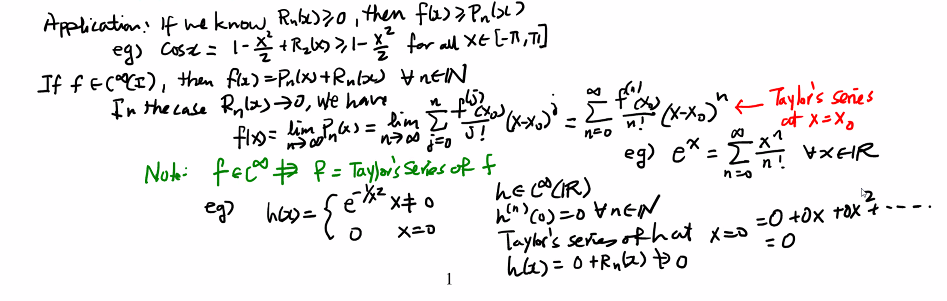 Application: If we know Rₙ(x) ≥ 0, then f(x) ≥ Pₙ(x)
eg) cos x = 1 - x²/2 + R₂(x) ≥ 1 - x²/2 for all x ∈ [-π, π]
If f ∈ C^∞(I), then f(x) = Pₙ(x) + Rₙ(x) ∀ n ∈ ℕ
In the case Rₙ(x) → 0, we have
f(x) = lim_{n→∞} Pₙ(x) = lim_{n→∞} ∑_{j=0}^{n} f^{(j)}(x₀)/j! (x-x₀)^j = ∑_{n=0}^{∞} f^{(n)}(x₀)/n! (x-x₀)^n ← Taylor's series at x = x₀
eg) e^x = ∑_{n=0}^{∞} x^n/n! ∀ x ∈ ℝ
Note: f ∈ C^∞ ⇏ f = Taylor's series of f
eg) h(x) = { e^{-1/x²} x ≠ 0
0 x = 0
h ∈ C^∞(ℝ)
h^{(n)}(0) = 0 ∀ n ∈ ℕ
Taylor's series of h at x = 0 = 0 + 0x + 0x² + ·····
= 0
h(x) = 0 + Rₙ(x) ↛ 0
1